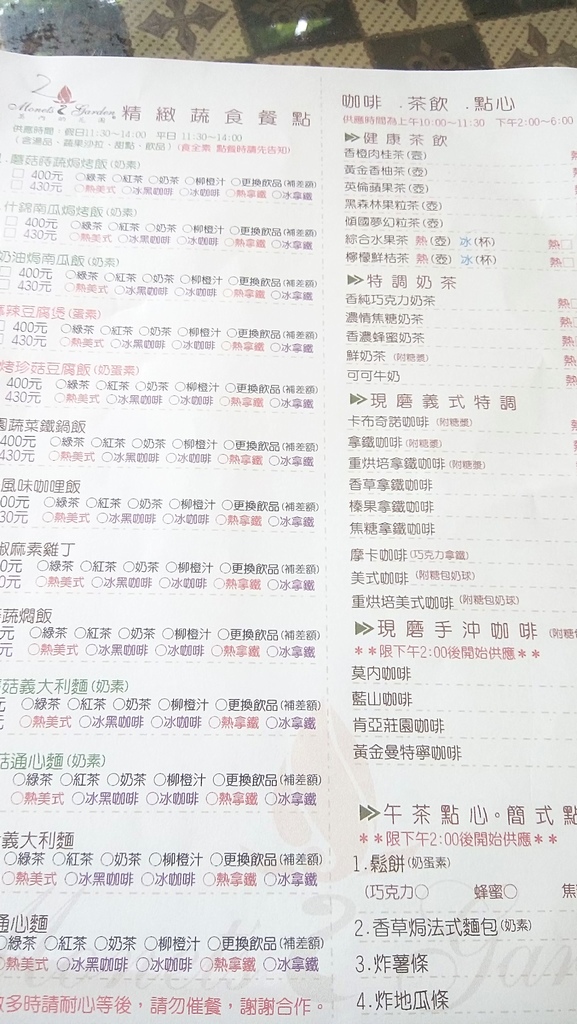 2
Monets Garden
精緻蔬食餐點
供應時間：假日11:30~14:00 平日 11:30~14:00
(含湯品、蔬果沙拉、甜點、飲品) (食全素 點餐時請先告知)
蘑菇蒔蔬焗烤飯(奶素)
□ 400元 ○綠茶 ○紅茶 ○奶茶 ○柳橙汁 ○更換飲品(補差額)
□ 430元 ○熱美式 ○冰黑咖啡 ○冰咖啡 ○熱拿鐵 ○冰拿鐵
什錦南瓜焗烤飯(奶素)
□ 400元 ○綠茶 ○紅茶 ○奶茶 ○柳橙汁 ○更換飲品(補差額)
□ 430元 ○熱美式 ○冰黑咖啡 ○冰咖啡 ○熱拿鐵 ○冰拿鐵
奶油焗南瓜飯(奶素)
□ 400元 ○綠茶 ○紅茶 ○奶茶 ○柳橙汁 ○更換飲品(補差額)
□ 430元 ○熱美式 ○冰黑咖啡 ○冰咖啡 ○熱拿鐵 ○冰拿鐵
辣豆腐煲(蛋素)
400元 ○綠茶 ○紅茶 ○奶茶 ○柳橙汁 ○更換飲品(補差額)
430元 ○熱美式 ○冰黑咖啡 ○冰咖啡 ○熱拿鐵 ○冰拿鐵
烤珍菇豆腐飯(奶蛋素)
400元 ○綠茶 ○紅茶 ○奶茶 ○柳橙汁 ○更換飲品(補差額)
430元 ○熱美式 ○冰黑咖啡 ○冰咖啡 ○熱拿鐵 ○冰拿鐵
園蔬菜鐵鍋飯
400元 ○綠茶 ○紅茶 ○奶茶 ○柳橙汁 ○更換飲品(補差額)
430元 ○熱美式 ○冰黑咖啡 ○冰咖啡 ○熱拿鐵 ○冰拿鐵
風味咖哩飯
00元 ○綠茶 ○紅茶 ○奶茶 ○柳橙汁 ○更換飲品(補差額)
30元 ○熱美式 ○冰黑咖啡 ○冰咖啡 ○熱拿鐵 ○冰拿鐵
椒麻素雞丁
0元 ○綠茶 ○紅茶 ○奶茶 ○柳橙汁 ○更換飲品(補差額)
0元 ○熱美式 ○冰黑咖啡 ○冰咖啡 ○熱拿鐵 ○冰拿鐵
蔬燜飯
元 ○綠茶 ○紅茶 ○奶茶 ○柳橙汁 ○更換飲品(補差額)
元 ○熱美式 ○冰黑咖啡 ○冰咖啡 ○熱拿鐵 ○冰拿鐵
菇義大利麵(奶素)
元 ○綠茶 ○紅茶 ○奶茶 ○柳橙汁 ○更換飲品(補差額)
○熱美式 ○冰黑咖啡 ○冰咖啡 ○熱拿鐵 ○冰拿鐵
菇通心麵(奶素)
○綠茶 ○紅茶 ○奶茶 ○柳橙汁 ○更換飲品(補差額)
○熱美式 ○冰黑咖啡 ○冰咖啡 ○熱拿鐵 ○冰拿鐵
義大利麵
○綠茶 ○紅茶 ○奶茶 ○柳橙汁 ○更換飲品(補差額)
○熱美式 ○冰黑咖啡 ○冰咖啡 ○熱拿鐵 ○冰拿鐵
通心麵
○綠茶 ○紅茶 ○奶茶 ○柳橙汁 ○更換飲品(補差額)
○熱美式 ○冰黑咖啡 ○冰咖啡 ○熱拿鐵 ○冰拿鐵
多時請耐心等後，請勿催餐，謝謝合作。
咖啡 .茶飲 .點心
供應時間為上午10:00~11:30 下午2:00~6:00
健康茶飲
香橙肉桂茶(壺)
黃金香柚茶(壺)
英倫蘋果茶(壺)
黑森林果粒茶(壺)
傾國夢幻粒茶(壺)
綜合水果茶 熱(壺) 冰(杯) 熱□
檸檬鮮桔茶 熱(壺) 冰(杯) 熱□
特調奶茶
香純巧克力奶茶 熱
濃情焦糖奶茶 熱
香濃蜂蜜奶茶 熱
鮮奶茶(附糖漿) 熱
可可牛奶 熱
現磨義式特調
卡布奇諾咖啡(附糖漿)
拿鐵咖啡(附糖漿) 熱
重烘培拿鐵咖啡(附糖漿) 熱
香草拿鐵咖啡
榛果拿鐵咖啡
焦糖拿鐵咖啡
摩卡咖啡(巧克力拿鐵)
美式咖啡(附糖包奶球)
重烘培美式咖啡(附糖包奶球)
現磨手沖咖啡(附糖
**限下午2:00後開始供應**
莫內咖啡
藍山咖啡
肯亞莊園咖啡
黃金曼特寧咖啡
午茶點心。簡式點
**限下午2:00後開始供應**
1.鬆餅(奶蛋素)
(巧克力○ 蜂蜜○ 焦
2.香草焗法式麵包(奶素)
3.炸薯條
4.炸地瓜條